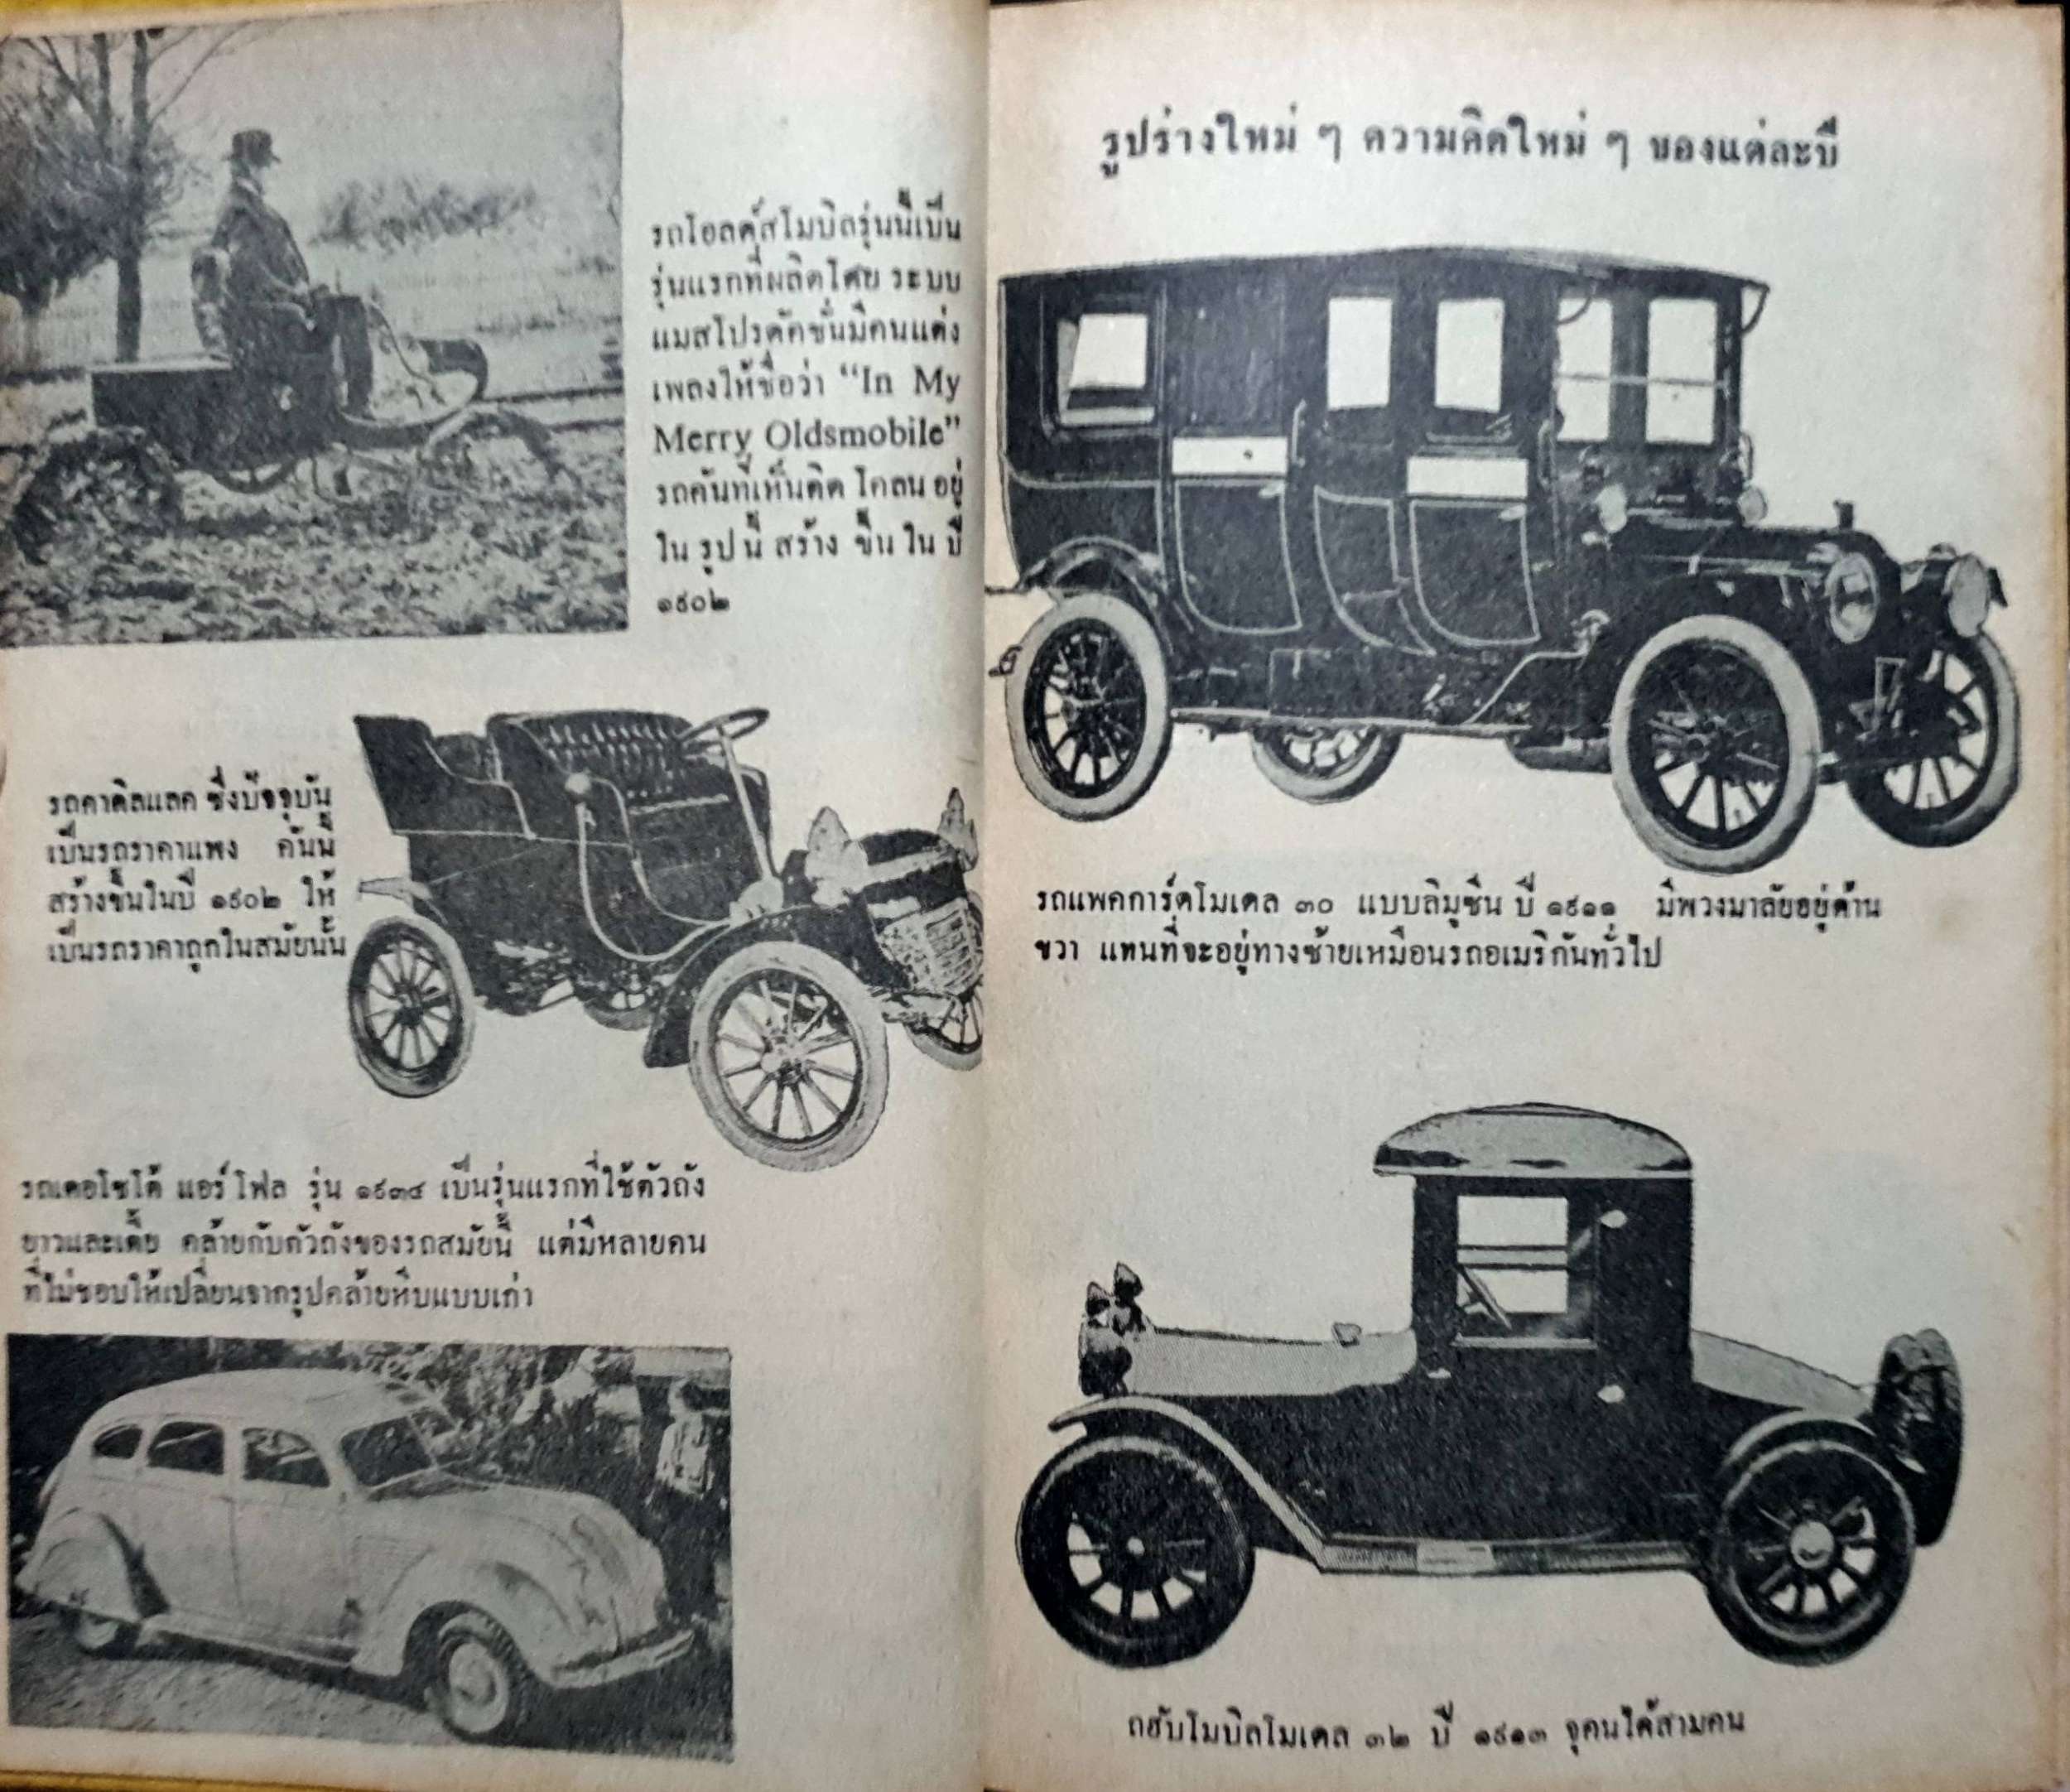 รถโอลด์สโมบิลรุ่นนี้เป็น
รุ่นแรกที่ผลิตโดย ระบบ
แมสโปรดัคชั่นมีคนแต่ง
เพลงให้ชื่อว่า “In My
Merry Oldsmobile”
รถคันที่เห็นติด โคลน อยู่
ใน รูป นี้ สร้าง ขึ้น ใน ปี
๑๙๐๒
รถคาดิลแลค ซึ่งปัจจุบัน
เป็นรถราคาแพง คันนี้
สร้างขึ้นในปี ๑๙๐๒ ให้
เป็นรถราคาถูกในสมัยนั้น
รถเดอโซโต้ แอร์ โฟล รุ่น ๑๙๓๔ เป็นรุ่นแรกที่ใช้ตัวถัง
ยาวและเตี้ย คล้ายกับตัวถังของรถสมัยนี้ แต่มีหลายคน
ที่ไม่ชอบให้เปลี่ยนจากรูปคล้ายหีบแบบเก่า
รูปร่างใหม่ ๆ ความคิดใหม่ ๆ ของแต่ละปี
รถแพคการ์ดโมเดล ๓๐ แบบลิมูซีน ปี ๑๙๑๑ มีพวงมาลัยอยู่ด้าน
ขวา แทนที่จะอยู่ทางซ้ายเหมือนรถอเมริกันทั่วไป
ถฮับโมบิลโมเดล ๓๒ ปี ๑๙๑๓ จุคนได้สามคน